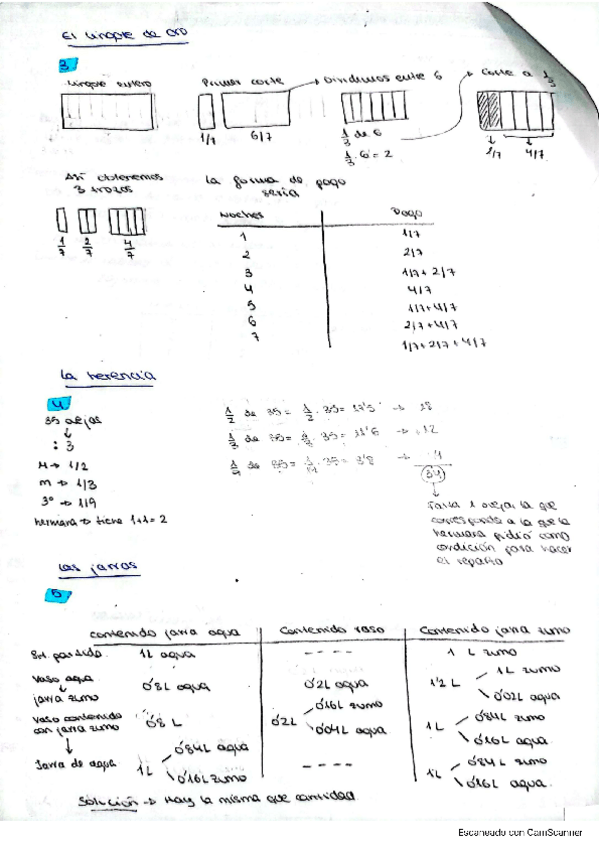 El lingote de oro
3
Lingote entero
Primer corte → Dividimos entre 6 → Corte a 1/3
1/7 6/7 1/3 de 6 1/7 4/7
1/3 · 6 = 2
Así obtenemos
3 trozos
1/7 2/7 4/7
La forma de pago
sería
Noches Pago
1 1/7
2 2/7
3 1/7 + 2/7
4 4/7
5 1/7 + 4/7
6 2/7 + 4/7
7 1/7 + 2/7 + 4/7
La herencia
4
35 ovejas
: 3
M → 1/2
m → 1/3
3º → 1/9
hermana → tiene 1+1=2
1/2 de 35 = 1/2 · 35 = 17'5 → 18
1/3 de 35 = 1/3 · 35 = 11'6 → 12
1/9 de 35 = 1/9 · 35 = 3'8 → 4
34
1 oveja, la que
corresponde a la que la
hermana pidió como
condición para hacer
el reparto
Las jarras
5
Contenido jarra agua Contenido vaso Contenido jarra zumo
partida 1L agua ---- 1 L zumo
Vaso agua
↓
jarra zumo
0'8L agua 0'2L agua 1'2 L 1L zumo
0'02L agua
Vaso contenido
con jarra zumo
↓
Jarra de agua
0'8 L 0'2L 0'16L zumo
0'04L agua
1L 0'84L zumo
0'16L agua
1L 0'84L agua
0'16L zumo
---- 1L 0'84L zumo
0'16L agua
Solución → Hay la misma que cantidad
Escaneado con CamScanner